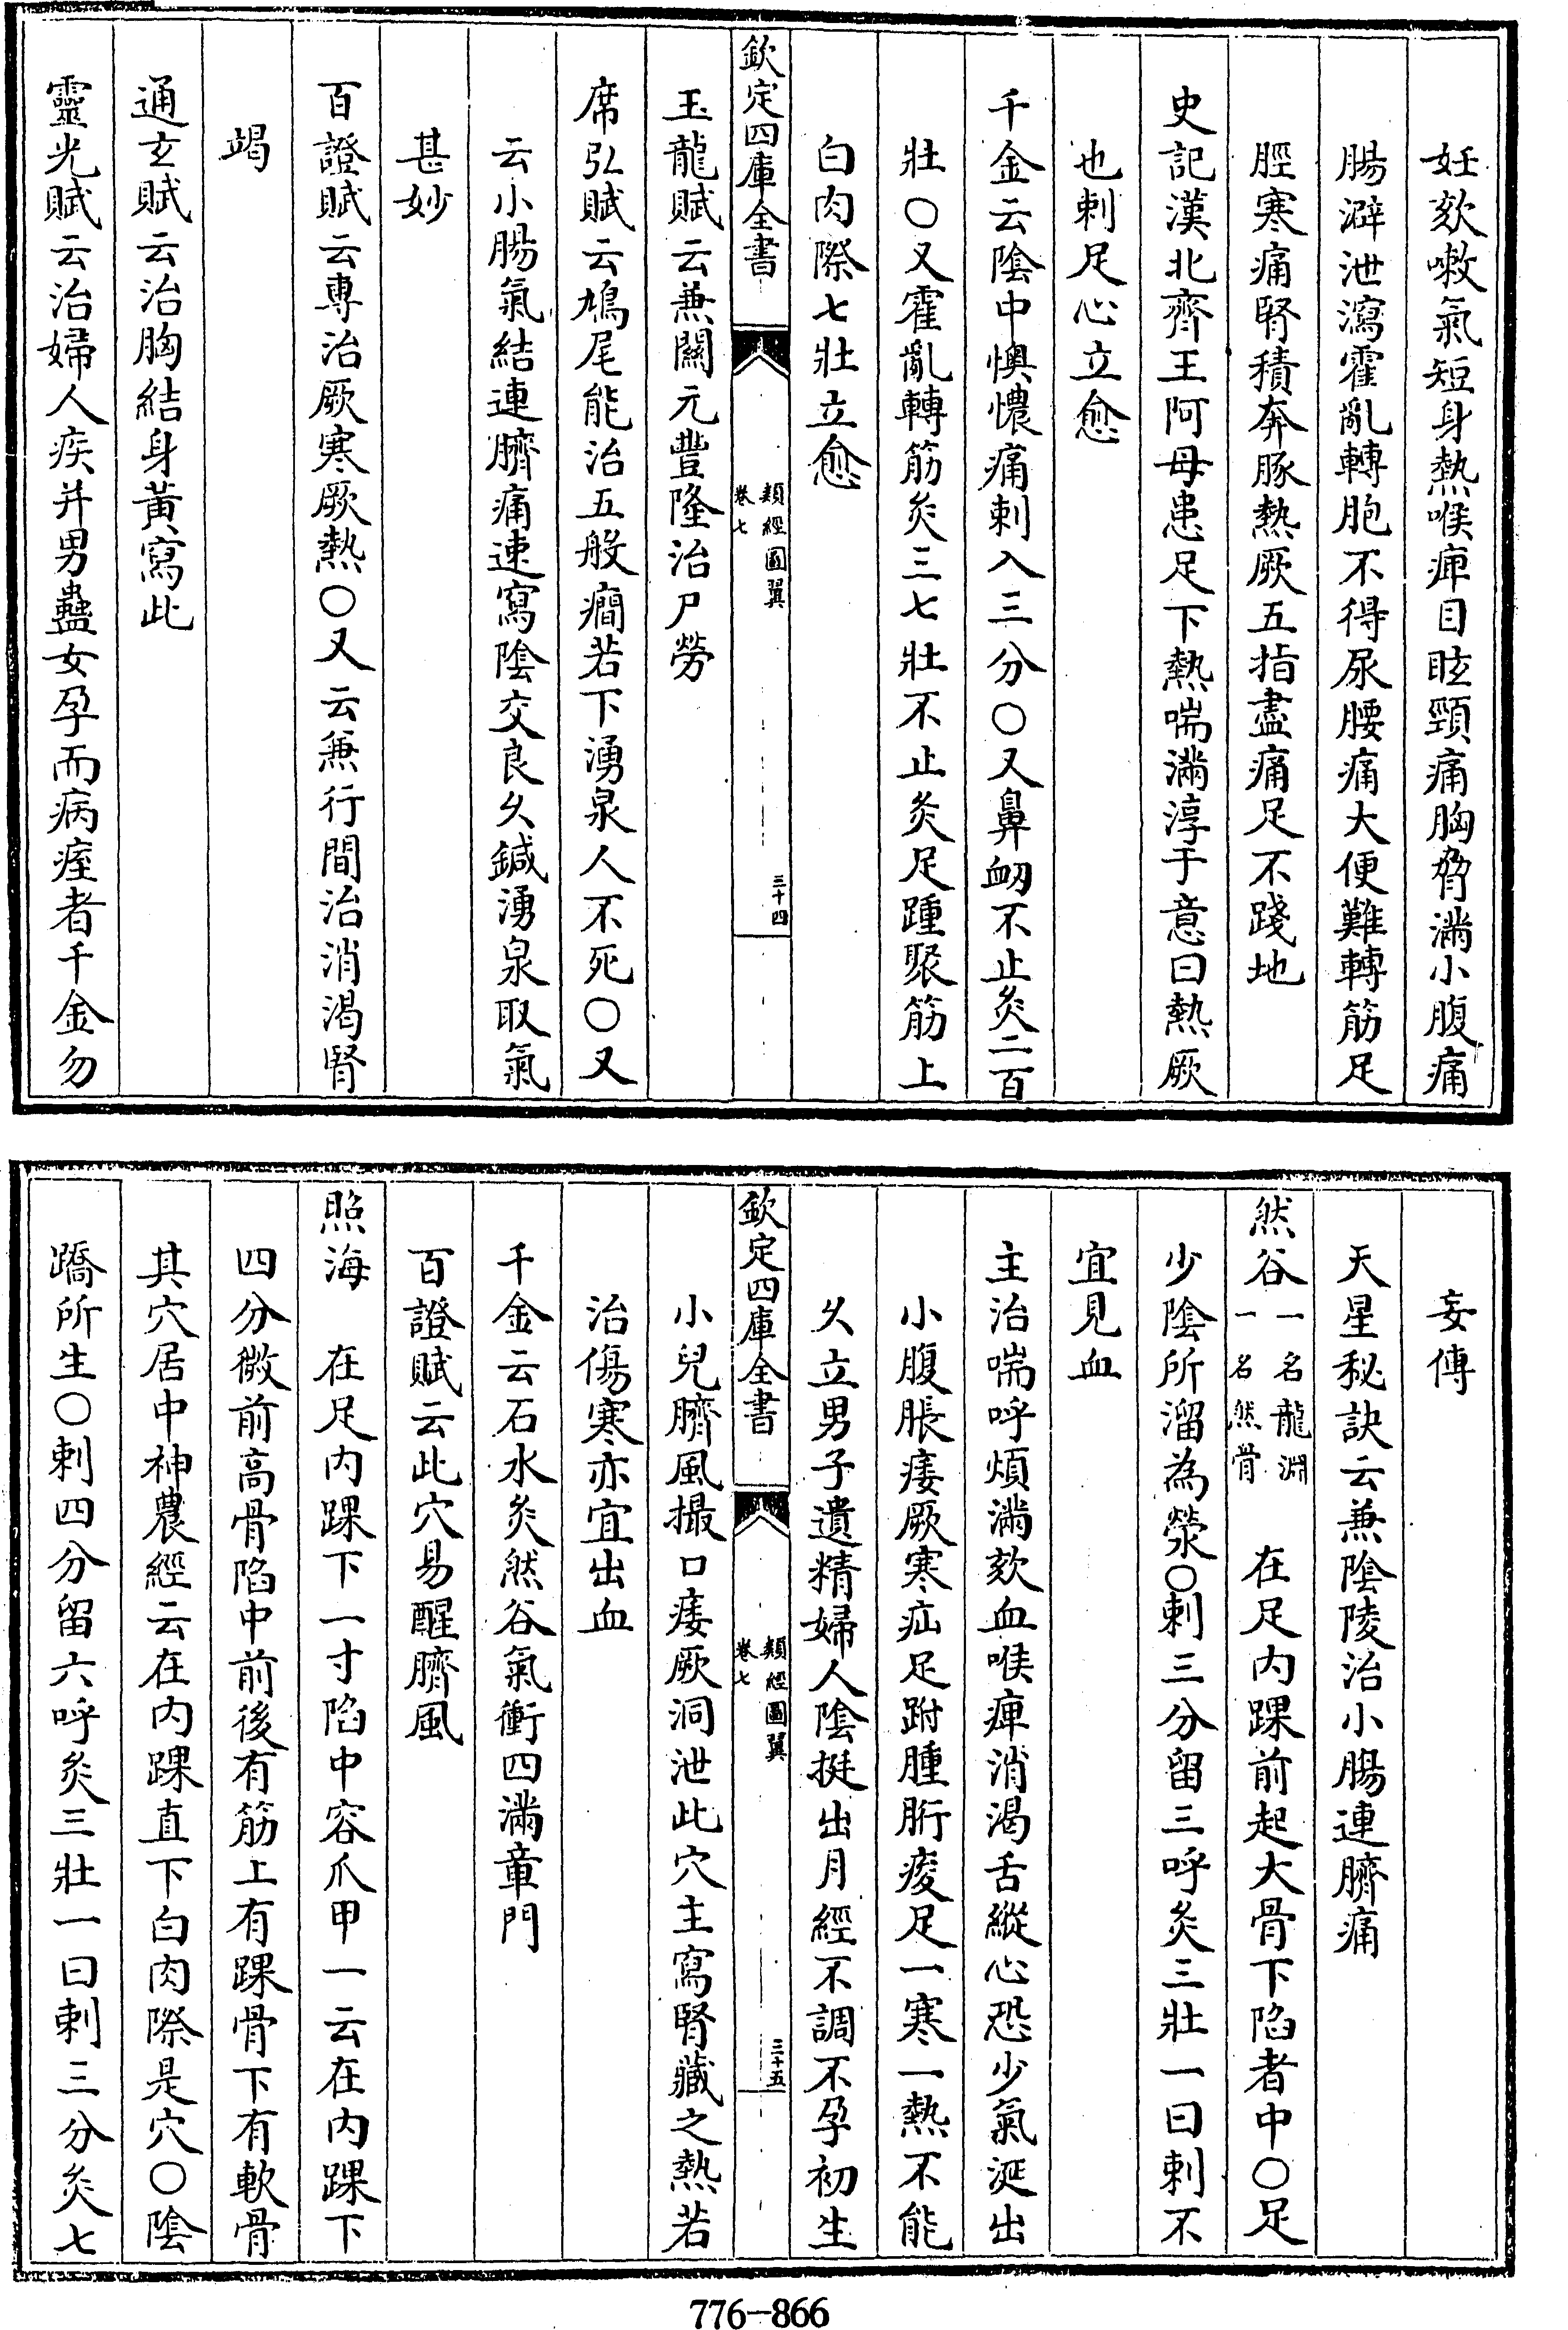 妊欬嗽氣短身熱喉痺目眩頸痛胸脅滿小腹痛
腸澼泄瀉霍亂轉胞不得尿腰痛大便難轉筋足
脛寒痛腎積奔豚熱厥五指盡痛足不踐地
史記漢北齊王阿母患足下熱喘滿淳于意曰熱厥
也刺足心立愈
千金云陰中懊憹痛刺入三分○又鼻衂不止灸二百
壯○又霍亂轉筋灸三七壯不止灸足踵聚筋上
白肉際七壯立愈
欽定四庫全書
類經圖翼
卷七
三十四
玉龍賦云兼關元豐隆治尸勞
席弘賦云鳩尾能治五般癎若下湧泉人不死○又
云小腸氣結連臍痛速寫陰交良久鍼湧泉取氣
甚妙
百證賦云專治厥寒厥熱○又云兼行間治消渴腎
竭
通玄賦云治胸結身黃寫此
靈光賦云治婦人疾并男蠱女孕而病痓者千金勿
妄傳
天星秘訣云兼陰陵治小腸連臍痛
然谷一名龍淵一名然骨 在足內踝前起大骨下陷者中○足
少陰所溜為滎○刺三分留三呼灸三壯一曰刺不
宜見血
主治喘呼煩滿欬血喉痺消渴舌縱心恐少氣涎出
小腹脹痿厥寒疝足跗腫胻痠足一寒一熱不能
久立男子遺精婦人陰挺出月經不調不孕初生
欽定四庫全書
類經圖翼
卷七
三十五
小兒臍風撮口痿厥洞泄此穴主寫腎藏之熱若
治傷寒亦宜出血
千金云石水灸然谷氣衝四滿章門
百證賦云此穴易醒臍風
照海 在足內踝下一寸陷中容爪甲一云在內踝下
四分微前高骨陷中前後有筋上有踝骨下有軟骨
其穴居中神農經云在內踝直下白肉際是穴○陰
蹻所生○刺四分留六呼灸三壯一曰刺三分灸七
776-866